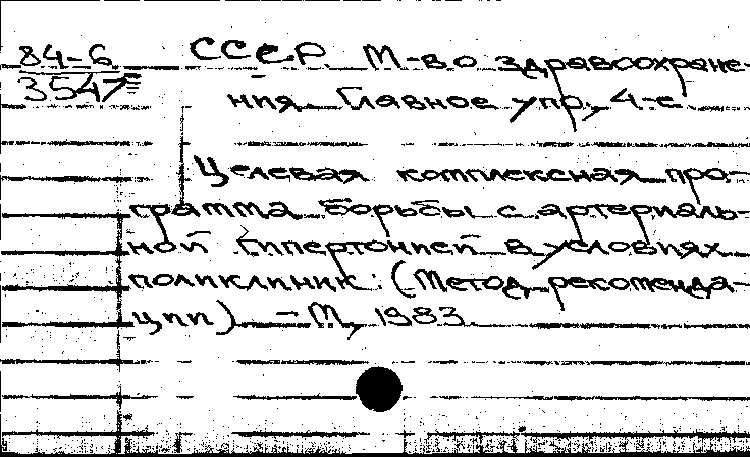 84-6
3547
СССР. М-во здравоохране-
ния. Главное упр., 4-е
Целевая комплексная про-
грамма борьбы с артериаль-
ной гипертонией в условиях
поликлиник: (Метод. рекоменда-
ции) - М., 1983.